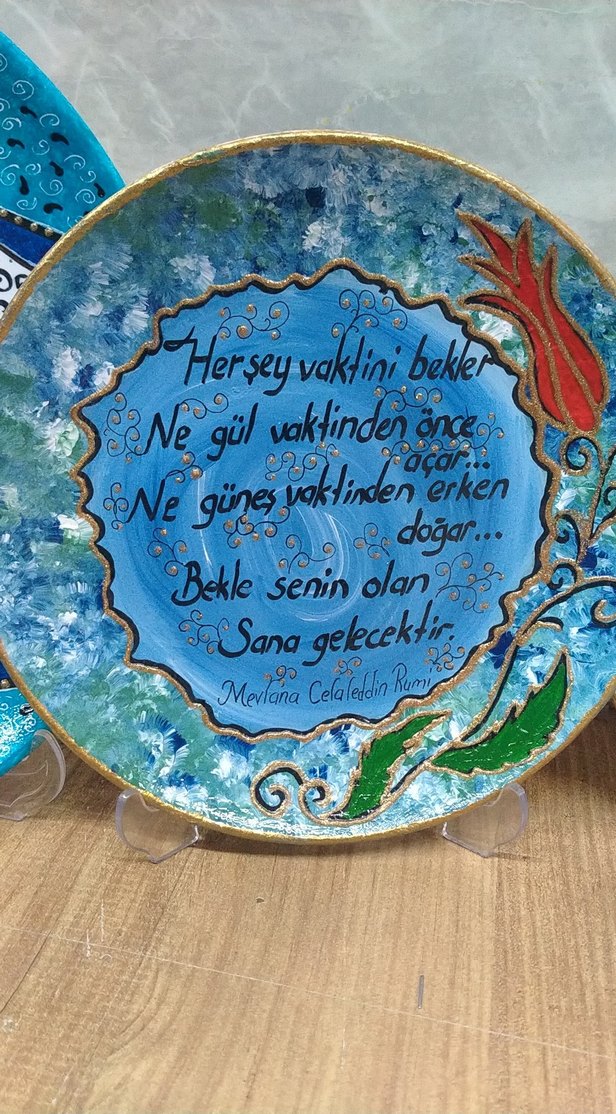 Herşey vaktini bekler
Ne gül vaktinden önce
açar...
Ne güneş vaktinden erken
doğar...
Bekle senin olan
Sana gelecektir.
Mevlana Celaleddin Rumi